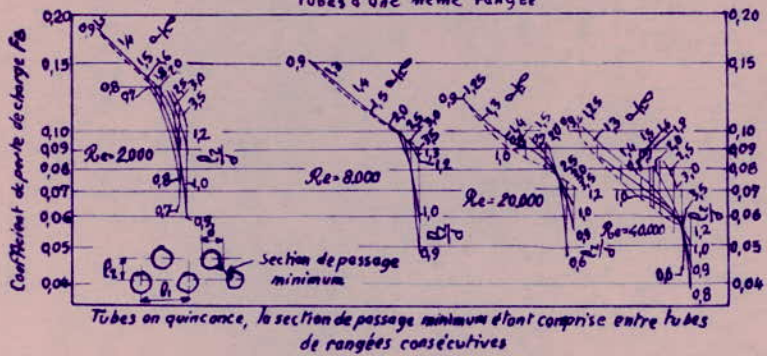 Tubes d'une même rangée
Coefficient de perte de charge FB
0,20
0,15
0,10
0,09
0,08
0,07
0,06
0,05
0,04
0,9
1,4
1,5
1,6
2,0
2,5
3,0
3,5
0,8
0,7
1,2
Re=2.000
0,8
1,0
0,7
0,9
0,9
1,3
1,4
1,5
2,0
3,0
1,2
Re=8.000
1,0
0,9
0,9
1,25
1,3
1,4
1,5
1,0
2,5
1,2
Re=20.000
1,0
0,6
0,9
1,25
1,3
1,4
2,5
3,0
3,5
1,0
Re=40.000
1,2
1,0
0,9
0,8
0,20
0,15
0,10
0,09
0,08
0,07
0,06
0,05
0,04
ℓ2
d
ℓ1
Section de passage
minimum
Tubes en quinconce, la section de passage minimum étant comprise entre tubes
de rangées consécutives